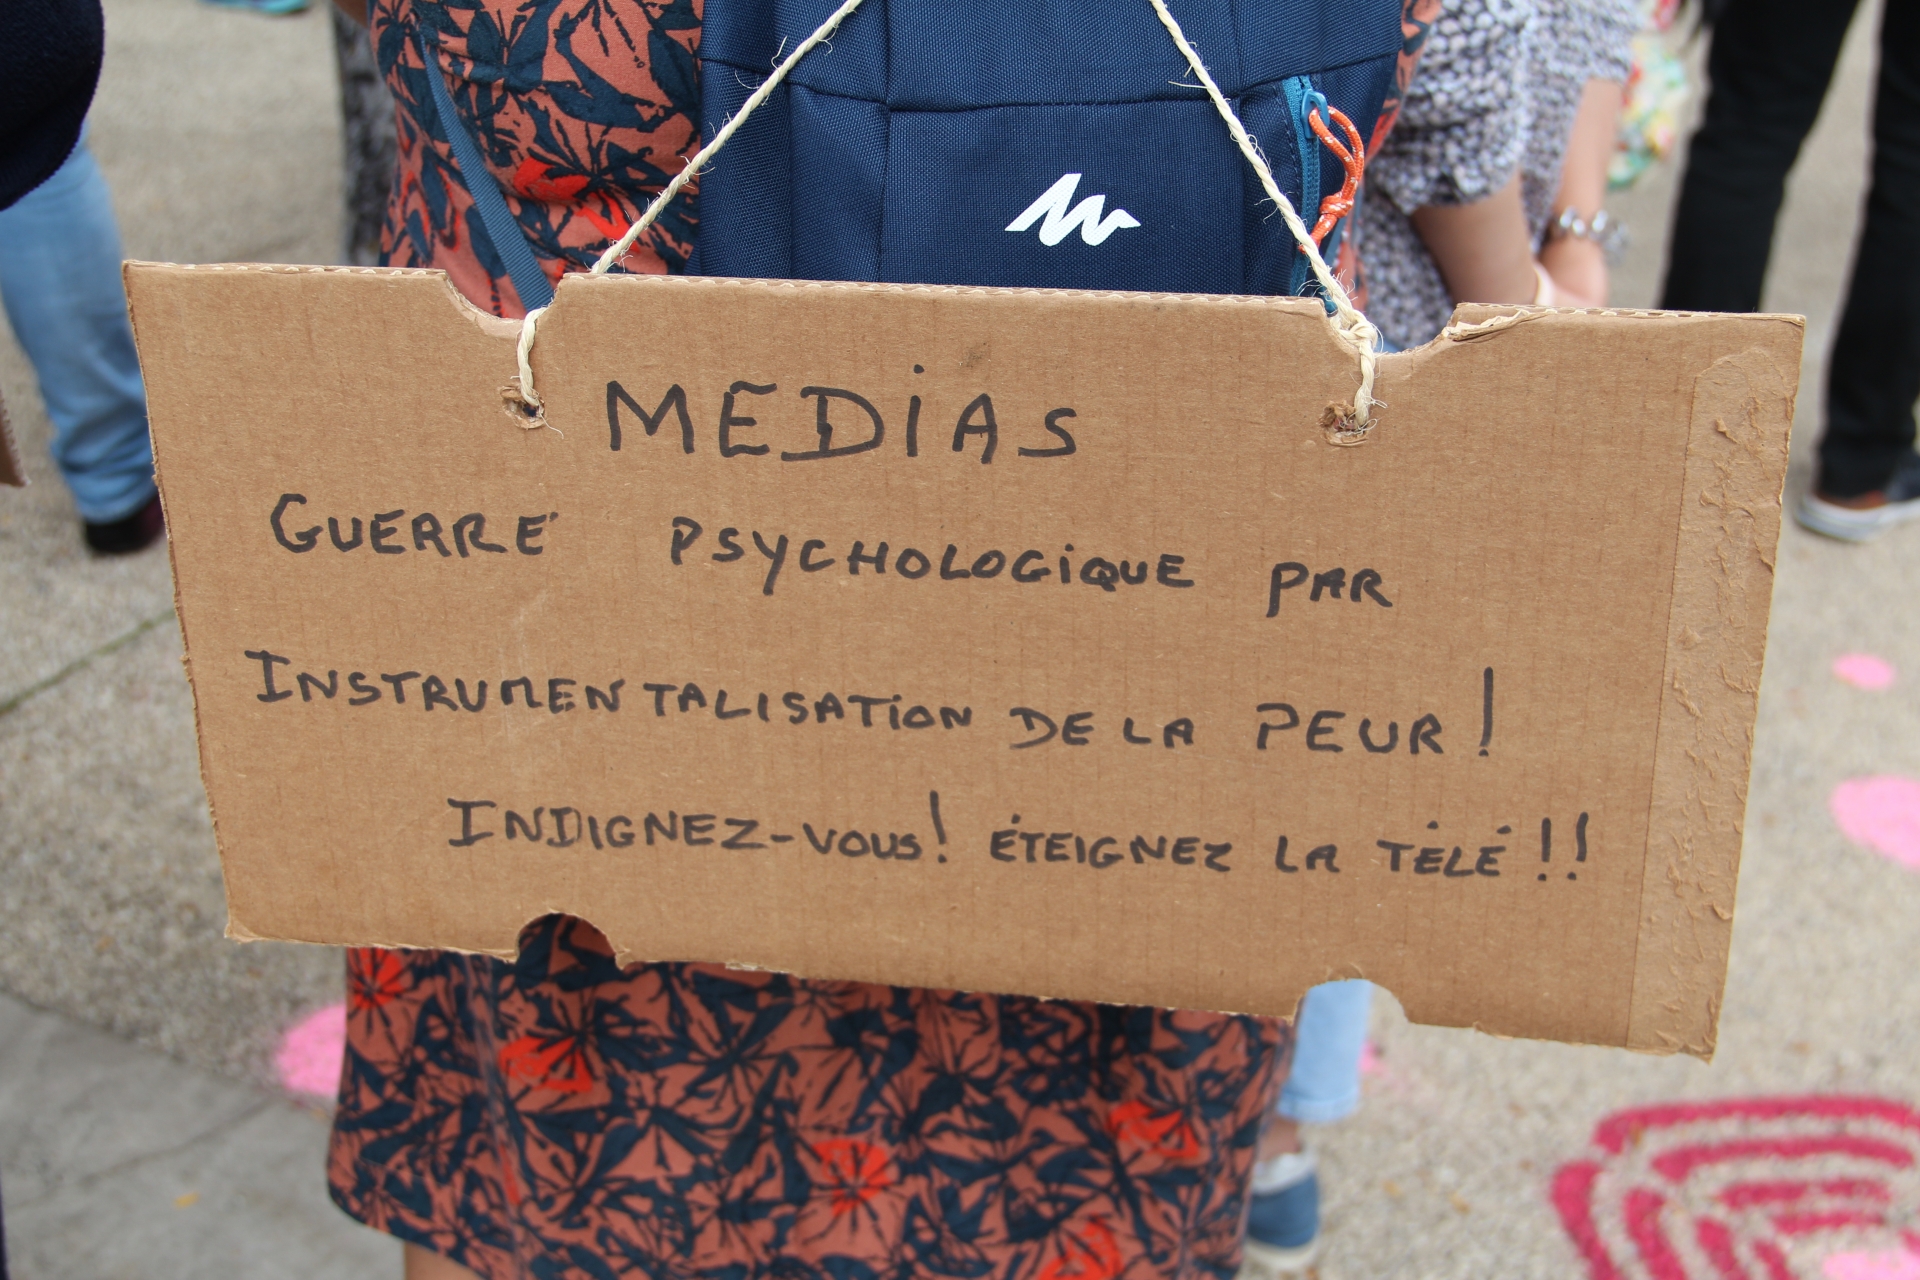 MEDiAS
GUERRE PSYCHOLOGiQUE PAR
INSTRUMENTALISATiON DE LA PEUR!
INDIGNEZ-VOUS! ÉTEIGNEZ LA TÉLÉ!!